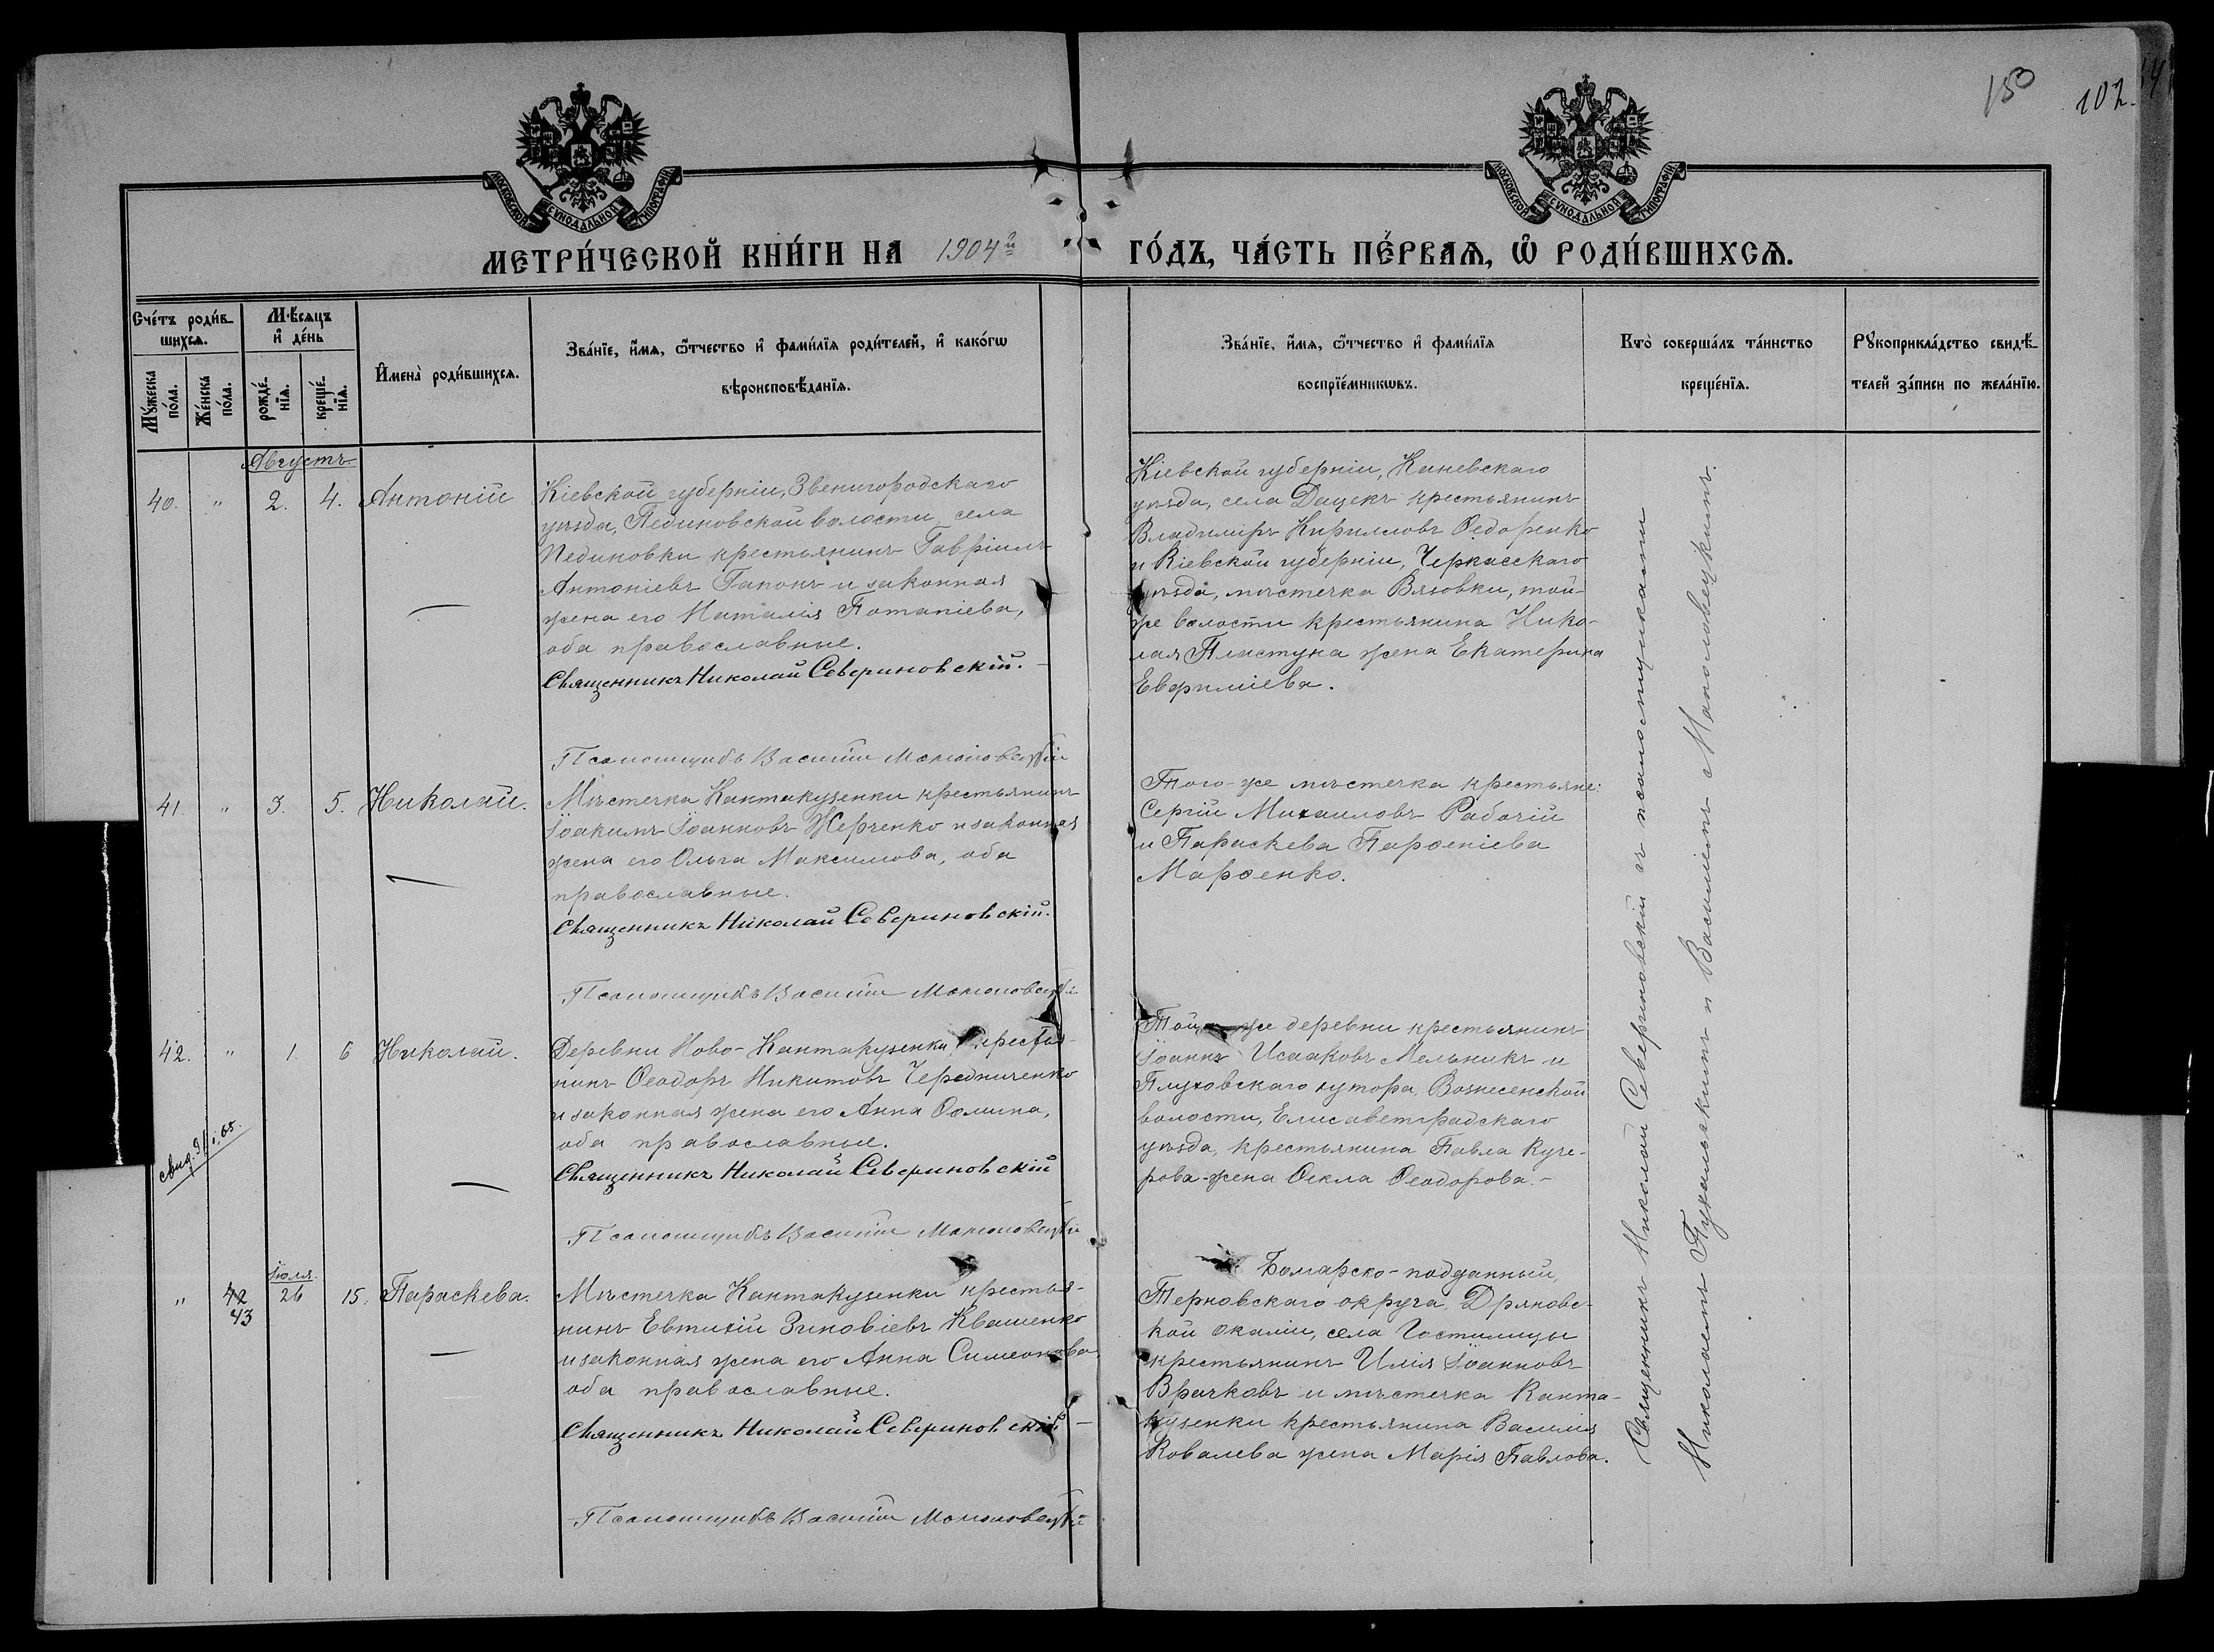 150
102.
МОСКОВСКОЙ СѴНОДАЛЬНОЙ ТИПОГРАФІИ
МОСКОВСКОЙ СѴНОДАЛЬНОЙ ТИПОГРАФІИ
МЕТРИ́ЧЕСКОЙ КНИ́ГИ НА 1904й ГО́ДЪ, ЧА́СТЬ ПЕ́РВАѦ, Ѡ҆ РОДИ́ВШИХСѦ.
Сче́тъ роди́в-
шихсѧ.
Мꙋ́жеска по́ла.
Же́нска по́ла.
Мѣ́сѧцъ
и҆ де́нь
рожде́-
нїѧ.
креще́-
нїѧ.
И҆мена̀ роди́вшихсѧ.
Зва́нїе, и҆́мѧ, ѻ҆́тчество и҆ фами́лїѧ роди́телей, и҆ како́гѡ
вѣроисповѣ́данїѧ.
Зва́нїе, и҆́мѧ, ѻ҆́тчество и҆ фами́лїѧ
воспрїе́мникѡвъ.
Кто̀ соверша́лъ та́инство
креще́нїѧ.
Рꙋкоприкла́дство свидѣ́-
телей за́писи по жела́нїю.
Августъ
40. " 2. 4. Антоній
Кіевской губерніи, Звенигородскаго
уѣзда, Пединовской волости села
Пединовки крестьянинъ Гавріилъ
Антоніевъ Гапонъ и законная
жена его Наталія Потапіева,
оба православные.
Священникъ Николай Севериновскій.
Псаломщикъ Василій
Кіевской губерніи, Каневскаго
уѣзда, села Дацекъ крестьянинъ
Владиміръ Кирилловъ Ѳедоренко
и Кіевской губерніи, Черкасскаго
уѣзда, мѣстечка Вязовки, той-
же волости крестьянина Нико-
лая Пластуна жена Екатерина
Евфиміева.
41. " 3. 5. Николай.
Мѣстечка Кантакузенки крестьянинъ
Іоакимъ Іоанновъ Жерченко и законная
жена его Ольга Максимова, оба
православные.
Священникъ Николай Севериновскій.
Псаломщикъ Василій
Того-же мѣстечка крестьяне:
Сергій Михаиловъ Рабочій
и Параскева Парѳеніева
Марѳенко.
42. " 1. 6 Николай.
Деревни Ново-Кантакузенки крестья-
нинъ Ѳеодоръ Никитовъ Чередниченко
и законная жена его Анна Ѳомина,
оба православные.
Священникъ Николай Севериновскій
Псаломщикъ Василій
Той же деревни крестьянинъ
Іоаннъ Исааковъ Мельникъ и
Глуховскаго хутора, Вознесенской
волости, Елисаветградскаго
уѣзда, крестьянина Павла Куче-
рова жена Ѳекла Ѳеодорова.-
Іюля.
" 42 26 15. Параскева.
43
Мѣстечка Кантакузенки крестья-
нинъ Евтихій Зиновіевъ Квашенко
и законная жена его Анна Симеонова,
оба православные.
Священникъ Николай Севериновскій
Псаломщикъ Василій
Болгарско-подданный,
Терновскаго округа, Дряновс-
кой околіи, села Гостилицы
крестьянинъ Илія Іоанновъ
Врачковъ и мѣстечка Канта-
кузенки крестьянина Василія
Ковалева жена Марія Павлова.
Священникъ Николай Севериновскій съ псаломщиками
Николаемъ и Василіемъ